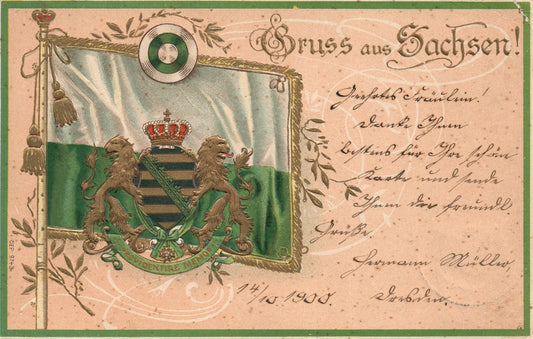 Gruss aus Sachsen!
Geehrtes Fräulein!
Danke Ihnen
bestens für Ihre schöne
Karte und sende
Ihnen die freundl
Grüße.
Hermann Müller,
Dresden.
14/10 1900.
PROVIDENTIAE MEMOR